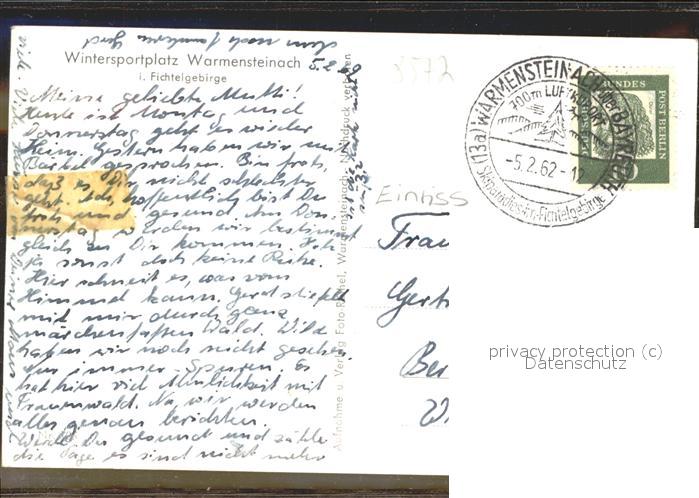 Wintersportplatz Warmensteinach
i. Fichtelgebirge
5.2.62
Meine geliebte Mutti!
Heute ist Montag und
Donnerstag geht es wieder
heim. Gestern haben wir mit
Bärbel gesprochen. Bin froh,
daß es Dir nicht schlechter
geht. Ach, hoffentlich bist Du
froh und gesund. Am Don-
nerstag werden wir bestimmt
gleich zu Dir kommen. Hab
ja sonst doch keine Ruhe.
Hier schneit es, was vom
Himmel kann. Gerd stiefelt
mit mir durch ganz
märchenhaften Wald. Wild
haben wir noch nicht gesehen,
nur immer Spuren. Es
hat hier viel Ähnlichkeit mit
Frauenwald. Na, wir werden
alles genau berichten.
Werde Du gesund und zähle
die Tage es sind nicht mehr
Aufnahme u. Verlag Foto-Reichel, Warmensteinach. Nachdruck verboten
8572
Einriss
(13a) WARMENSTEINACH über BAYREUTH
700m LUFTKURORT
-5.2.62-12
Skiparadies im Fichtelgebirge
BUNDES
POST BERLIN
Frau
Gert
Ber
W
privacy protection (c)
Datenschutz